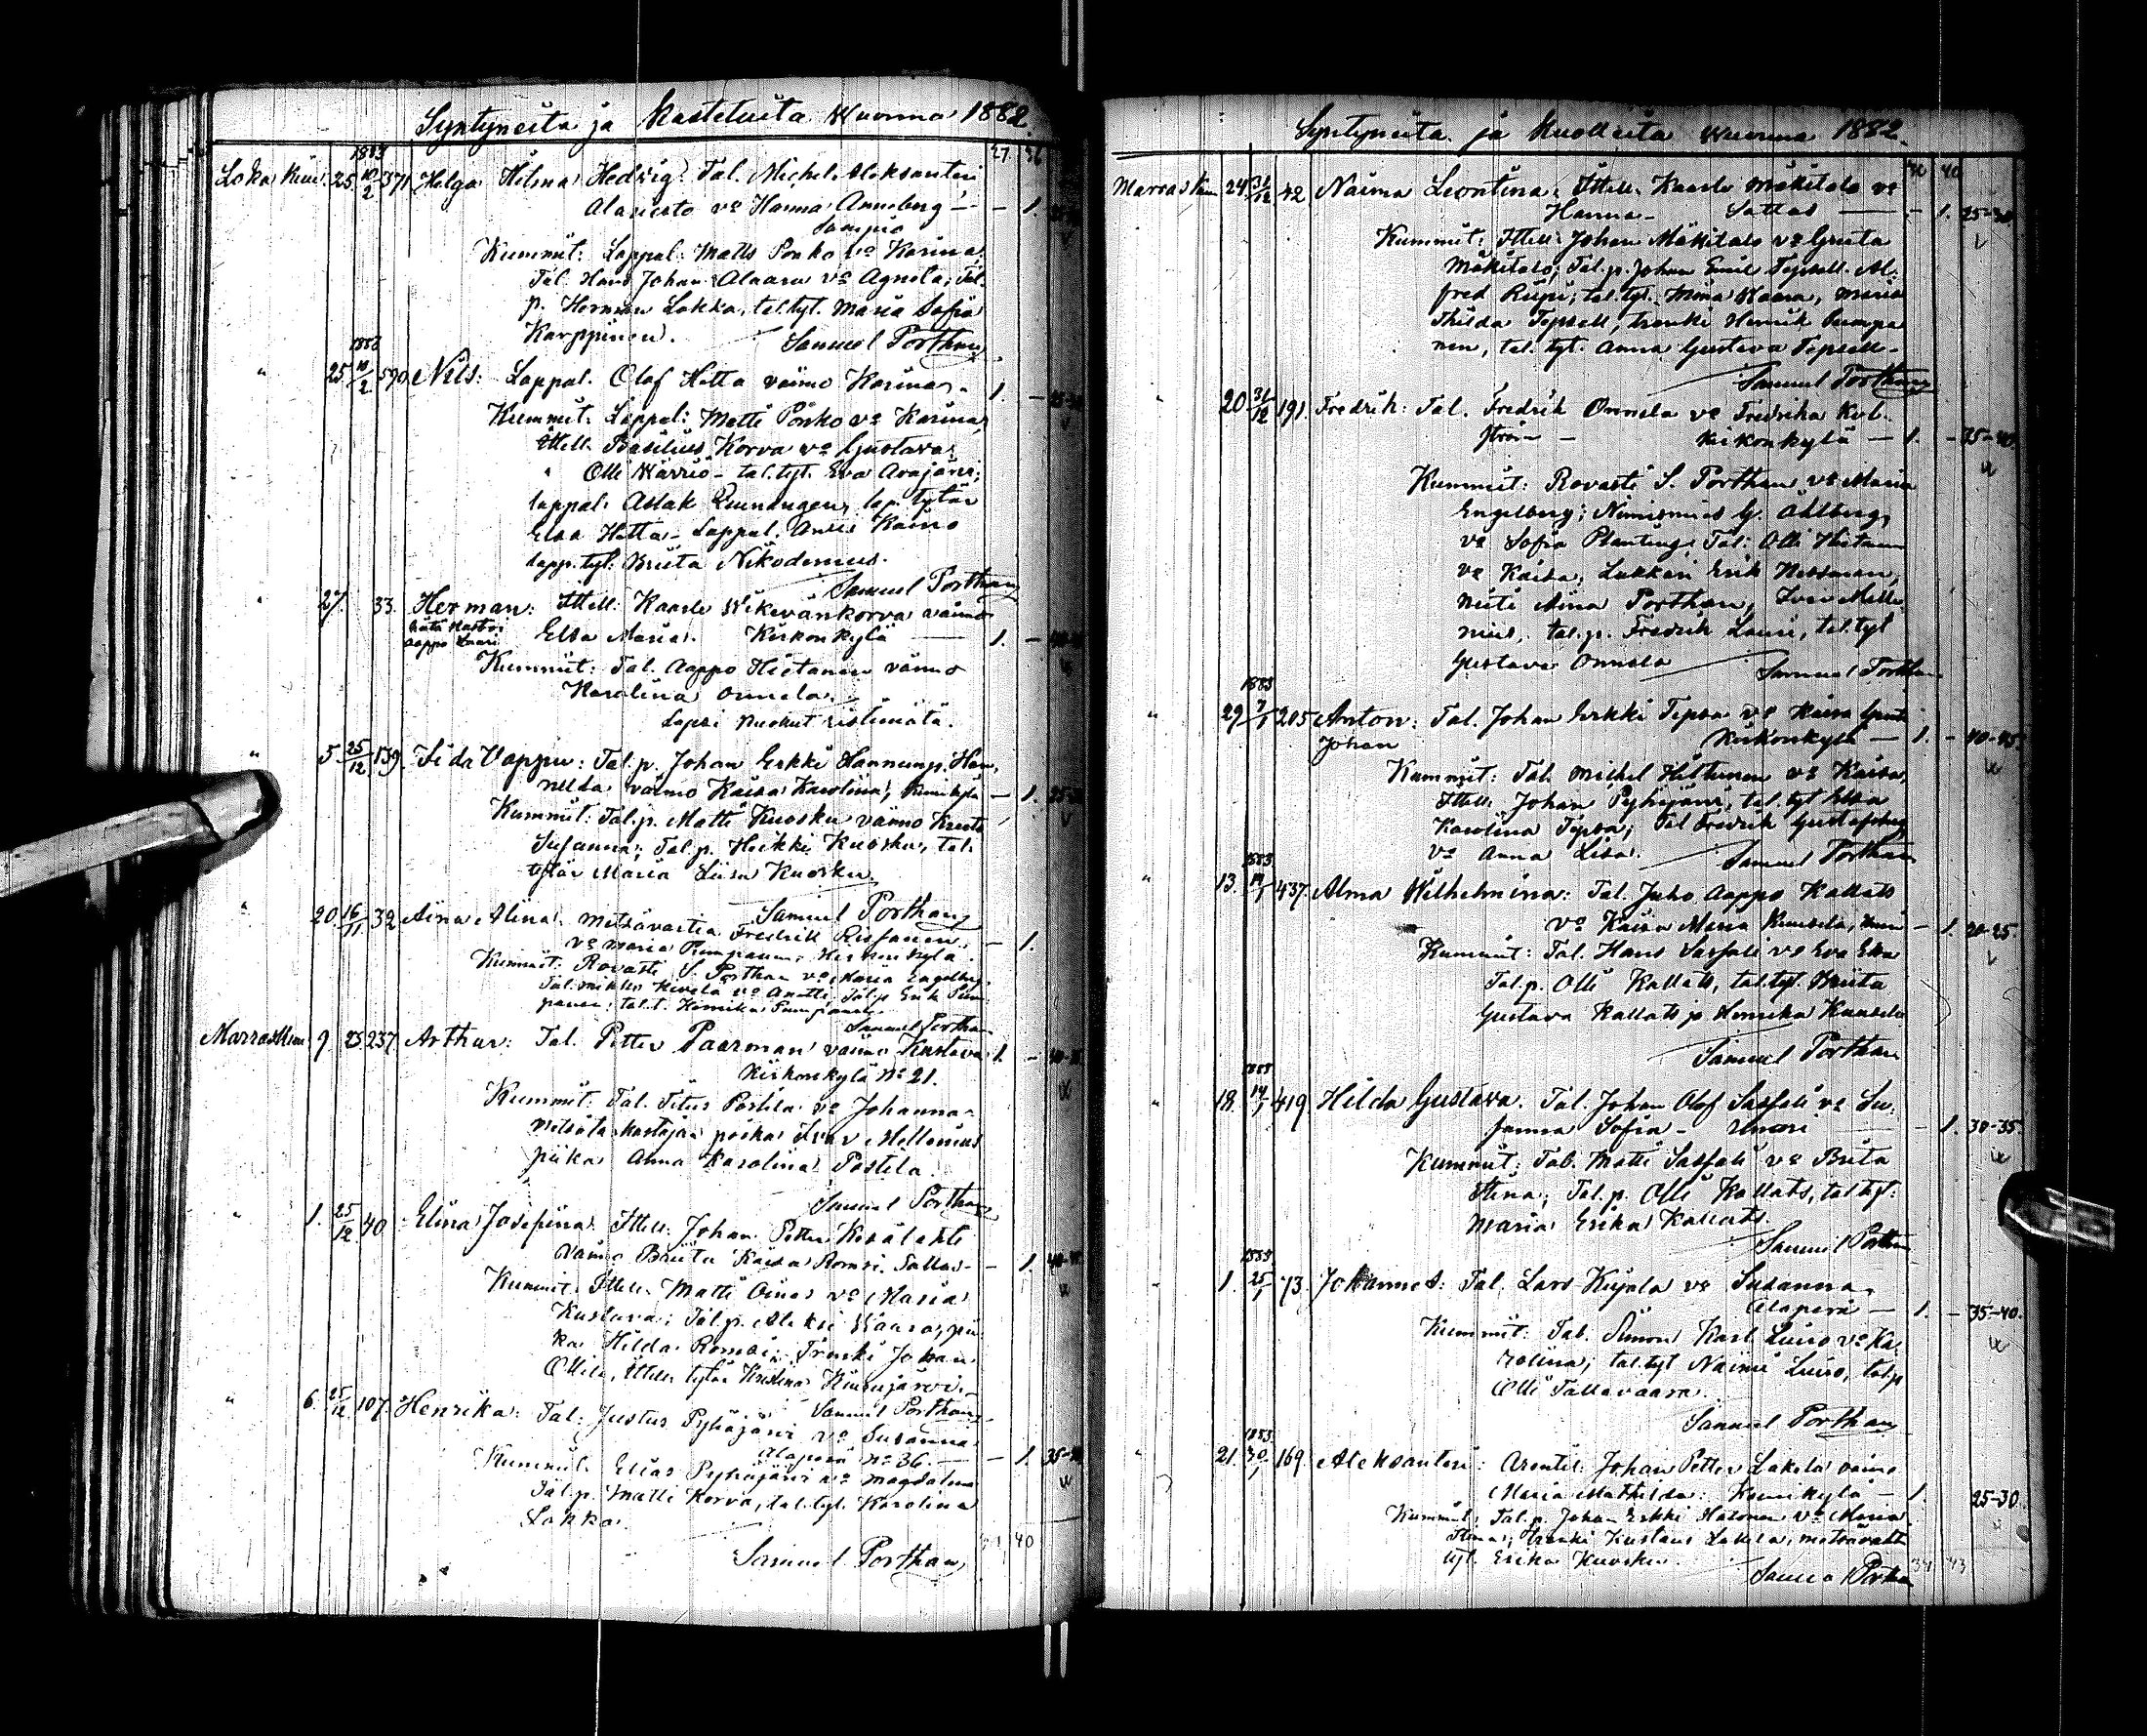 Syntyneitä ja Kastetuita Wuonna 1882.
27. 36
1883
Loka Kuu. 25 10/2 371 Helga Hilma Hedvig: Tal. Michel Aleksanteri
Alariesto vo Hanna Anneberg — — 1.
Sompio
Kummit: Lappal. Matts Ponko vo Karina,
Tal. Hans Johan Alaaru vo Agneta; Tal.
p. Herman Lokka, tal.tyt. Maria Sofia
Karppinen. Samuel Porthan
25 10/2 590 Nils: Lappal. Olof Hetta vaimo Karina. 1. —
Kummit: Lappal: Matti Ponko vo Karina,
Ittell. Basilius Korva vo Gustava,
" Olli Wärriö - tal.tyt. Eva Arajärvi;
lappal. Aslak lap. tytär
Elsa Hetta - Lappal. Anders
lapp. tyt. Briita Nikodemus.
Samuel Porthan
27. 33. Herman: Ittell. Kaarle Wäkevänkorva vaimo
hätä Kastoi
Aappo Elsa Maria. Kirkonkylä — 1. —
Kummit: Tal. Aappo Hietanen vaimo
Karolina Onnela.
Lapsi Kuollut ristimätä.
" 5 25/12 139. Fida Vappu: Tal.p. Johan Erkki Hannunp. Han
nelda vaimo Kaisa Karolina; — 1.
Kummit: Tal.p. Matti Kuosku vaimo
Susanna; Tal.p. Heikki Kuosku, tal.
tytär Maria Liisa Kuosku.
Samuel Porthan
" 20 16/11 32 Aina Alina: Metsävartia Fredrik Rissanen
vo Maria Pumpanen, Kirkonkylä. — 1.
Kummit: Rovasti S. Porthan vo Maria Engelberg
Tal. Mikko Kivelä vo Anetti, Tal.p Erik Pum
panen; tal.t. Henrika Pumpanen
Samuel Porthan
Marraskuu 9. 25 237. Arthur: Tal. Petter Paarman vaimo Kustava 1. —
Kirkonkylä No 21.
Kummit: Tal. Titus Postila vo Johanna -
poika Ivar Mellenius
piika Anna Karolina Postila.
Samuel Porthan
" 1. 25/12 40 Elina Josefina: Ittell. Johan Petter Kesälahti
vaimo Briita Kaisa Romsi. Sattas — — 1.
Kummit: Ittell. Matti Oinas vo Maria
Kustava; Tal.p. Aleksi Waara, pii
ka Hilda Romsi; Trenki Johan
Ollila, Ittell. tytär Kristina
Samuel Porthan
" 6. 25/12 107. Henrika: Tal. Justus Pyhäjärvi vo Susanna
Alaperä No 36. — — 1.
Kummit. Elias Pyhäjärvi vo Magdalena
Tal.p. Matti Korva, tal.tyt. Karolina
Lokka.
Samuel Porthan
40
Syntyneitä ja Kuolleita Wuonna 1882.
40
Marraskuu 24 31/12 42 Naima Leontina: Ittell. Kaarle Mäkitalo vo
Hanna - Sattas — — 1. 25-30
Kummit: Ittell. Johan Mäkitalo vo Greta
Mäkitalo; Tal.p. Johan Emil Tepsell. Al-
fred Riipi; tal.tyt. Mina Waara, Maria
Thilda Tepsell, trenki Henrik Pumpa
nen, tal. tyt. Anna Gustava Tepsell -
Samuel Porthan
20 31/12 191. Fredrik: Tal. Fredrik Onnela vo Fredrika Kvl.
ström — Kirkonkylä — 1. — 35-40.
Kummit: Rovasti S. Porthan vo Maria
Engelberg; Nimismies G. Ahlberg
vo Sofia Planting; Tal. Olli Hietanen
vo Kaisa, Lukkari Erik
Neiti Aina Porthan, Ivar Melle
nius, tal.p. Fredrik tal.tyt
Gustava Onnela Samuel Porthan
1883
" 29 7/1 205 Anton: Tal. Johan Erkki Tepsa vo Kaisa Greta
Johan Kirkonkylä — 1. — 40-45.
Kummit: Tal. Michel Hiltunen vo Kaisa,
Ittell. Johan Pyhäjärvi, tal.tyt Elsa
Karolina Tepsa; Tal Fredrik
vo Anna Lisa. Samuel Porthan
1883
" 13. 14/1 437. Alma Wilhelmina: Tal. Juho Aappo Kallats
vo Kaisa Maria — 1. 20-25
Kummit: Tal. Hans Sassali vo Eva
Tal.p. Olli Kallats, tal.tyt. Briita
Gustava Kallats ja Henrika
Samuel Porthan
1883
" 18. 14/1 419 Hilda Gustava. Tal. Johan Olof Sassali vo Su
sanna Sofia - Unari — 1. 30-35.
Kummit; Tal. Matti Sassali vo Brita
Stina; Tal.p. Olli Kallats, tal.tyt.
Maria Erika Kallats.
Samuel Porthan
1883
" 1. 25/1 73. Johannes: Tal. Lars Kujala vo Susanna
Alaperä — 1. — 35-40.
Kummit: Tal. Simon Karl Luiro vo Ka
rolina; tal.tyt Naimi Luiro, tal.p
Olli Tallavaara.
Samuel Porthan
1883
" 21. 30/1 169. Aleksanteri: Arentil. Johan Petter Lakela vaimo
Maria Mathilda: — 1. 25-30.
Kummit: Tal.p. Johan Erkki Halonen vo Maria
Stina; Trenki Kustaus Lakela, metsävahti
tyt. Erika Kuosku.
Samuel Porthan
43